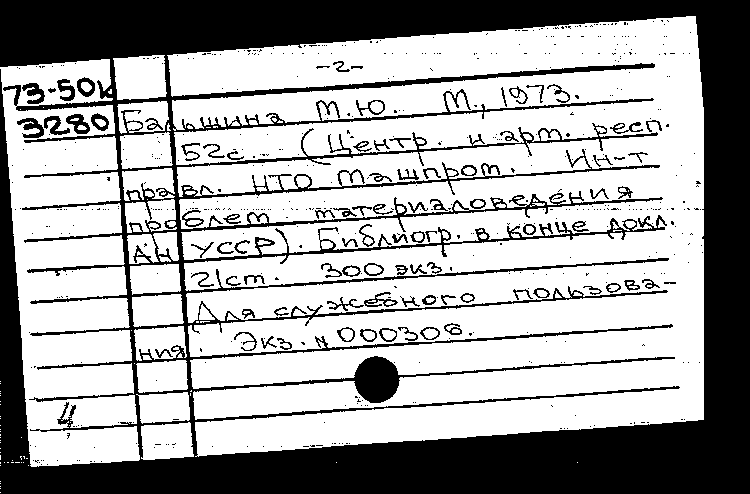 -2-
73-50к
3280 Бальшина М.Ю. М., 1973.
52с. (Центр. и арт. респ.
правл. НТО Машпром. Ин-т
проблем материаловедения
АН УССР). Библиогр. в конце докл.
21 ст. 300 экз.
Для служебного пользова-
ния. Экз. N 000308.
4